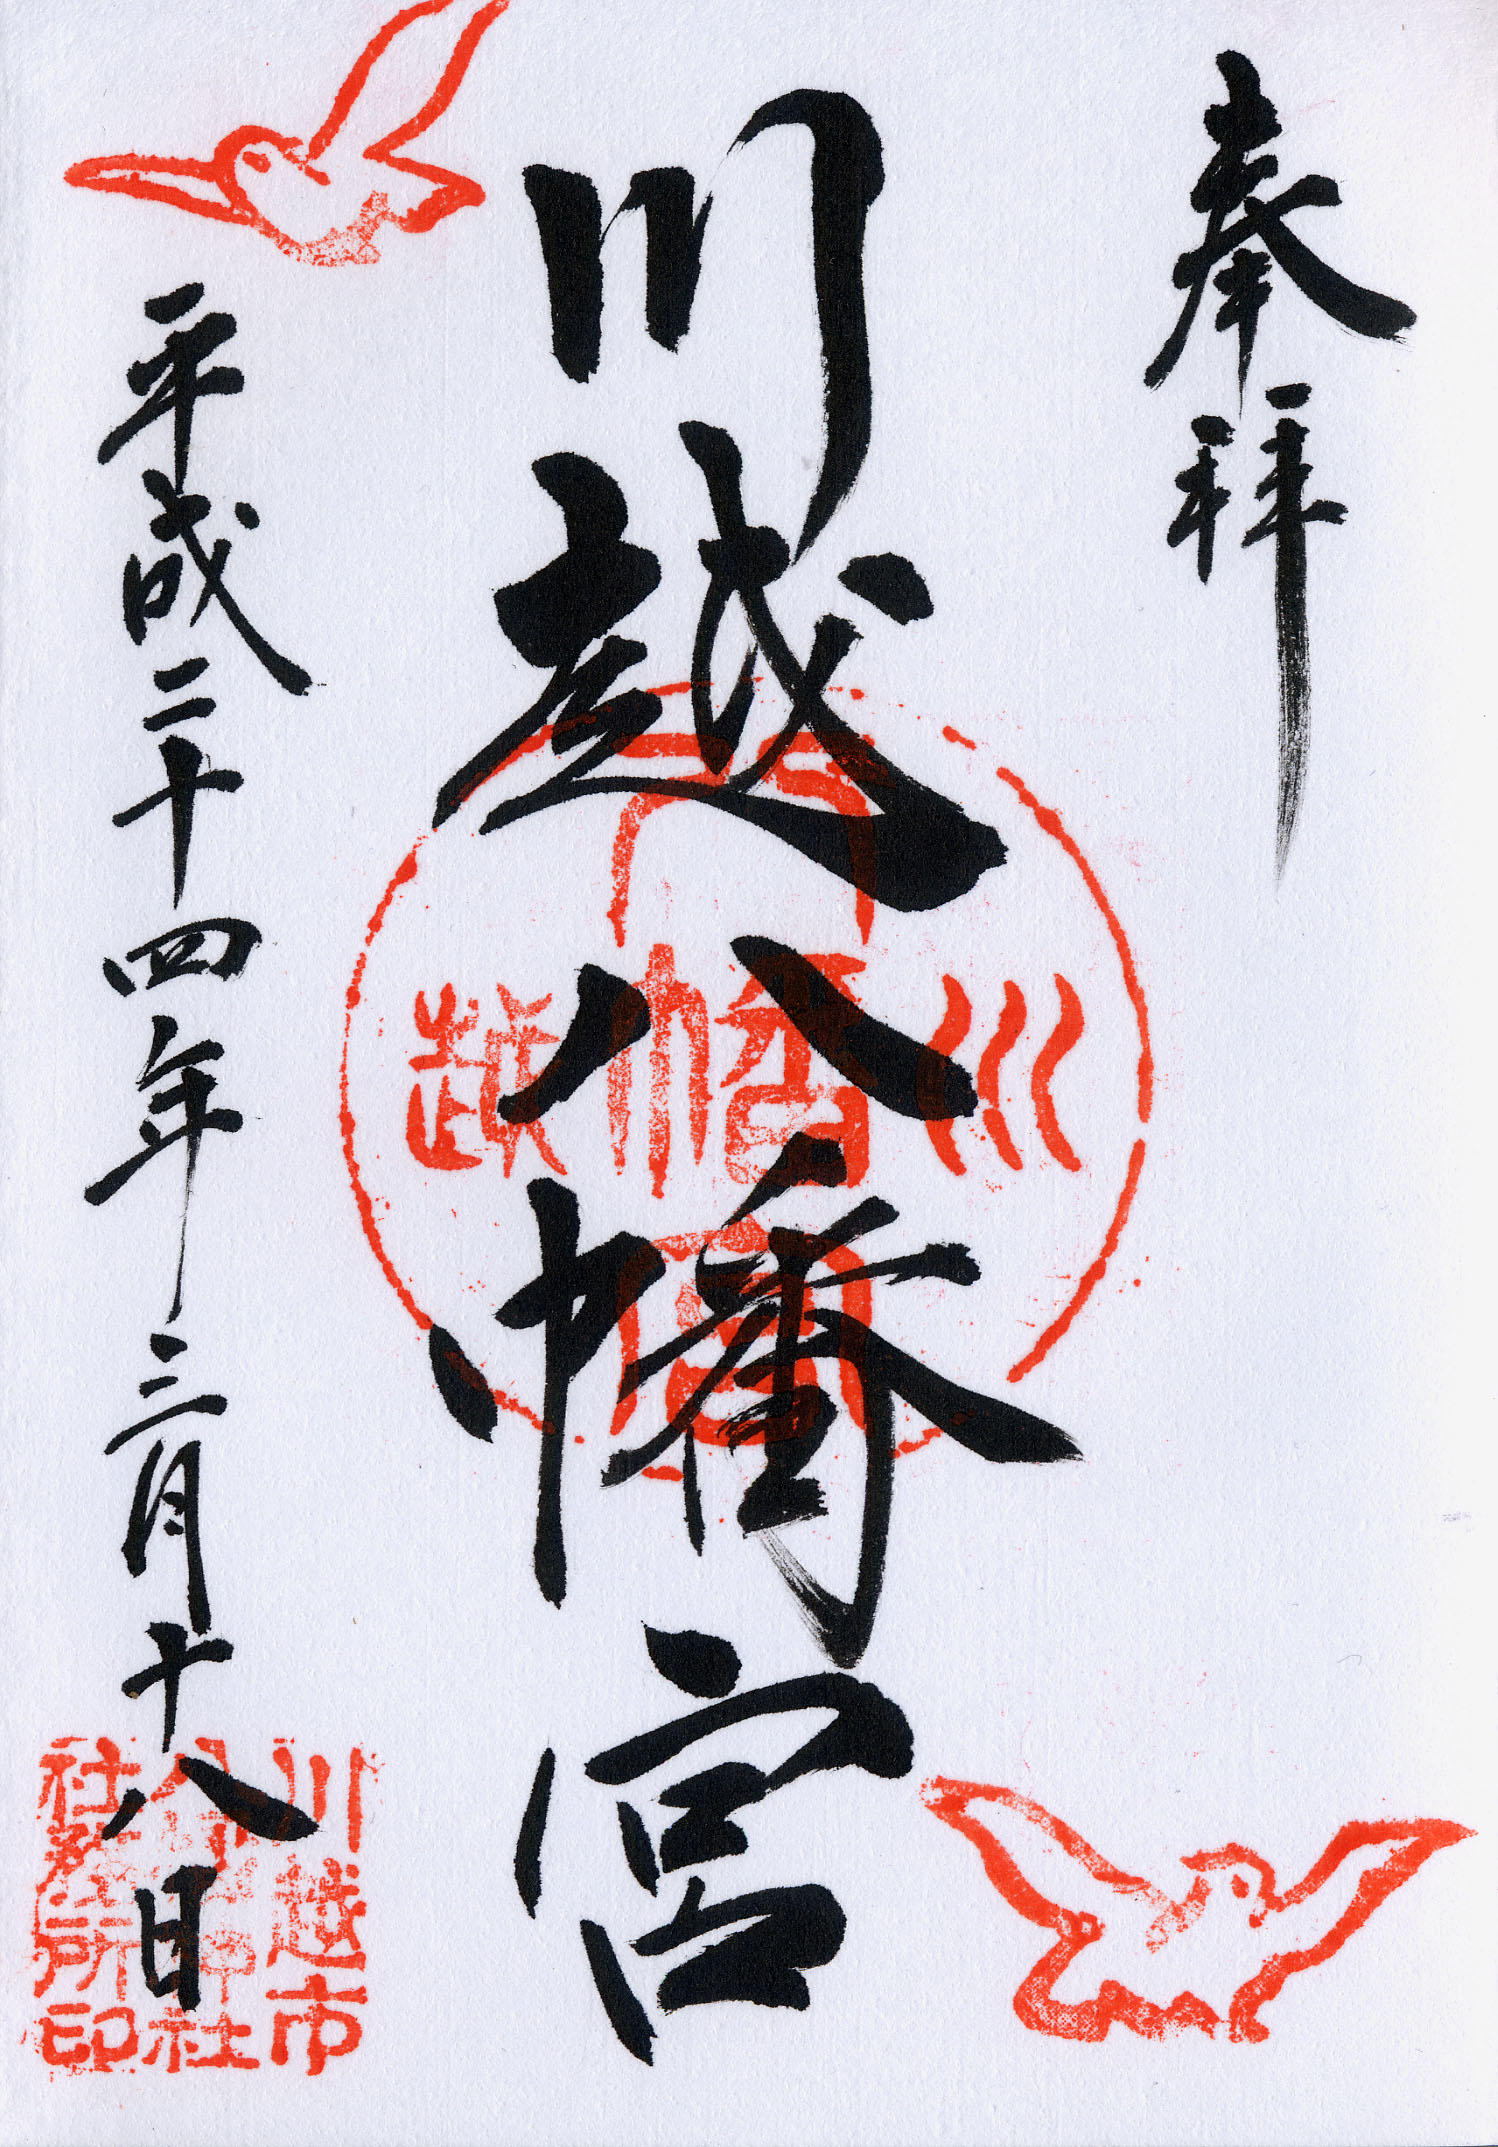 奉拝
川越八幡宮
平成二十四年三月十八日
川越
八幡宮
川越市
八幡神社
社務所印